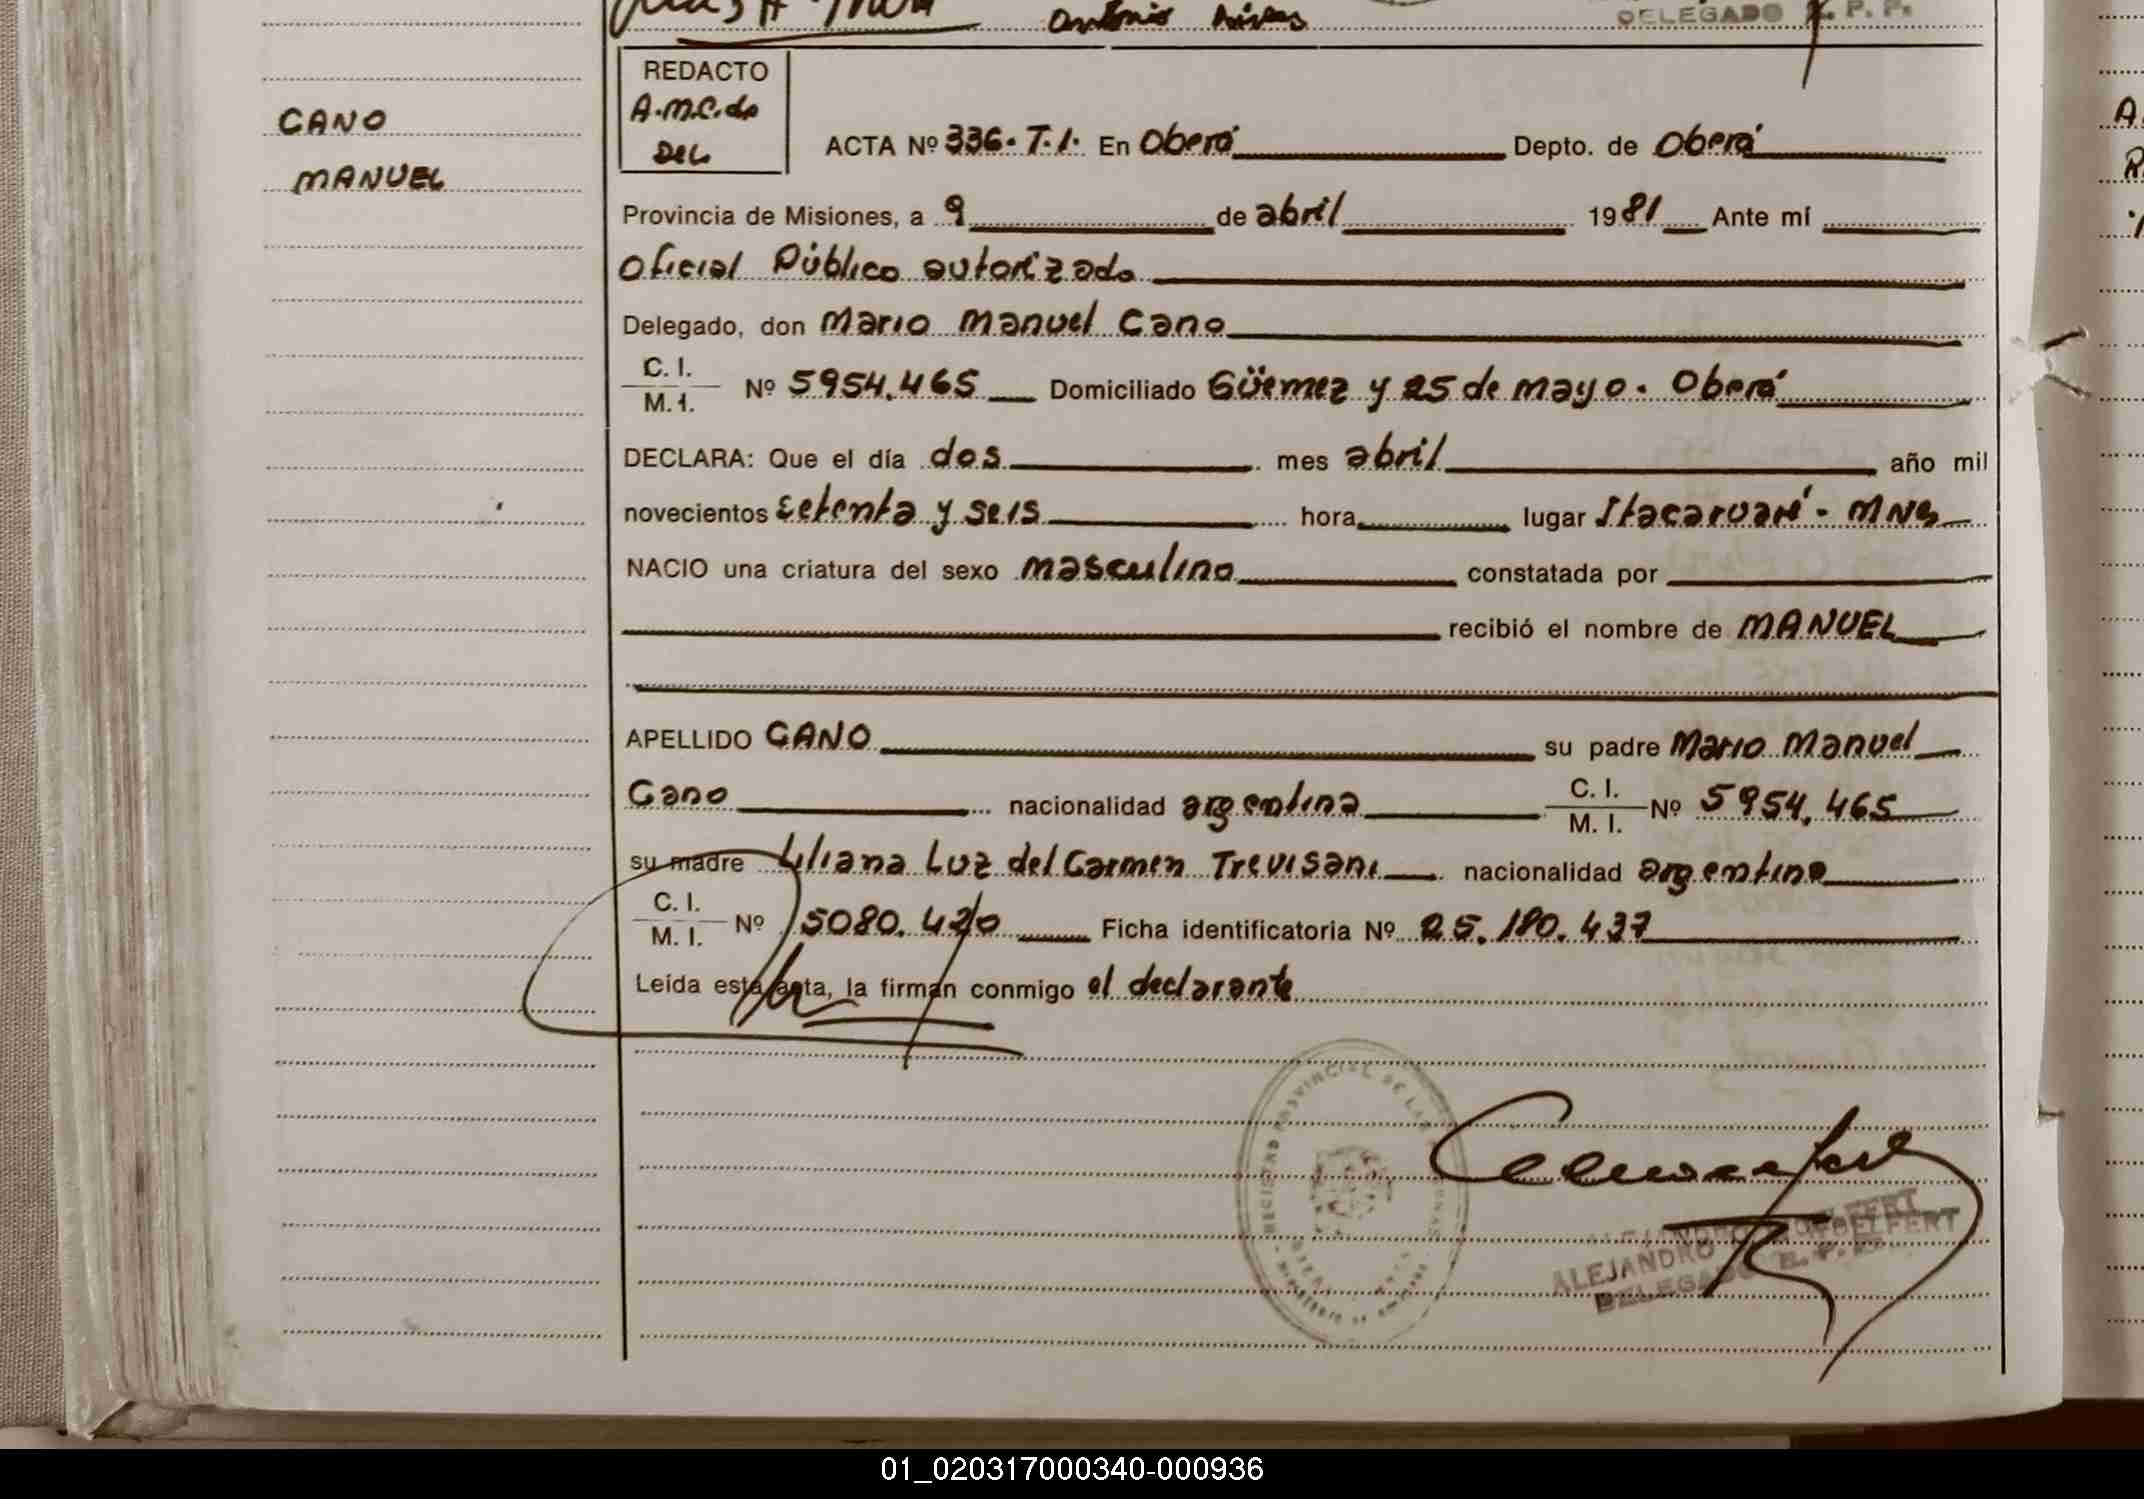 Antonio
DELEGADO R. P. P.
CANO
MANUEL
REDACTO
A.M.C.de
DEL
ACTA Nº 336. T.I. En Oberá Depto. de Oberá
Provincia de Misiones, a 9 de abril 1981 Ante mí
Oficial Público autorizado
Delegado, don Mario Manuel Cano
C. I.
M. I. Nº 5954.465 Domiciliado Güemez y 25 de mayo. Oberá
DECLARA: Que el día dos mes abril año mil
novecientos setenta y seis hora lugar Itacaruaré. MNS
NACIO una criatura del sexo masculino constatada por
recibió el nombre de MANUEL
APELLIDO CANO su padre Mario Manuel
Cano nacionalidad argentina C. I.
M. I. Nº 5954.465
su madre Liliana Luz del Carmen Trevisani nacionalidad argentina
C. I.
M. I. Nº 5080.420 Ficha identificatoria Nº 25.180.437
Leída esta acta, la firman conmigo el declarante
ALEJANDRO
DELEGADO R. P. P.
01_020317000340-000936